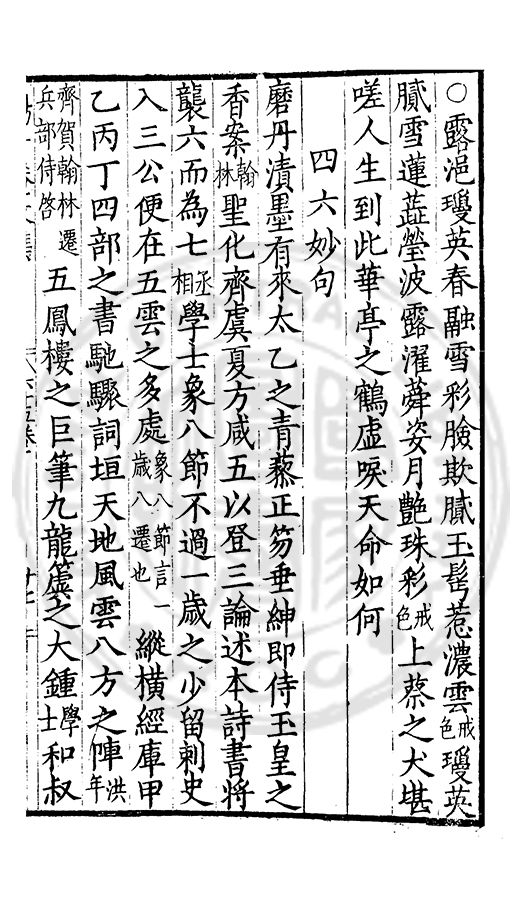 ○露浥瓊英春融雪彩臉欺膩玉髩惹濃雲戒色瓊英
膩雪蓮蘂瑩波露濯蕣姿月艶珠彩戒色上蔡之犬堪
嗟人生到此華亭之鶴虛唳天命如何
四六妙句
磨丹漬墨有來太乙之青藜正笏垂紳即侍玉皇之
香案翰林聖化齊虞夏方咸五以登三論述本詩書將
襲六而為七丞相學士象八節不過一歲之少留刺史
入三公便在五雲之多處象八節言一歲八遷也縱橫經庫甲
乙丙丁四部之書馳驟詞垣天地風雲八方之陣洪年
齊賀翰林遷兵部侍啓五鳳樓之巨筆九龍簴之大鍾學士和叔